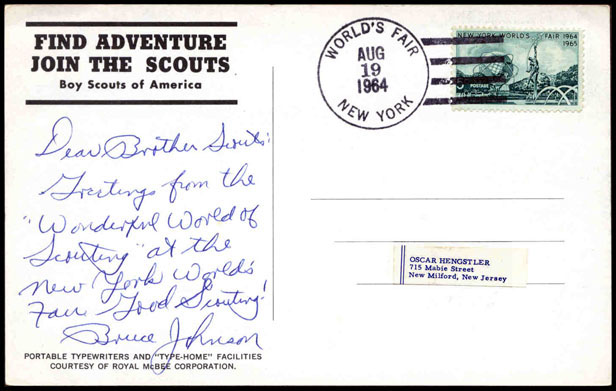 FIND ADVENTURE
JOIN THE SCOUTS
Boy Scouts of America
WORLD'S FAIR
AUG
19
1964
NEW YORK
NEW YORK WORLD'S FAIR 1964
1965
POSTAGE
Dear Brother Scouts:
Greetings from the
"Wonderful World of
Scouting" at the
New York World's
Fair. Good Scouting!
Bruce Johnson
OSCAR HENGSTLER
715 Mabie Street
New Milford, New Jersey
PORTABLE TYPEWRITERS AND "TYPE-HOME" FACILITIES
COURTESY OF ROYAL McBEE CORPORATION.